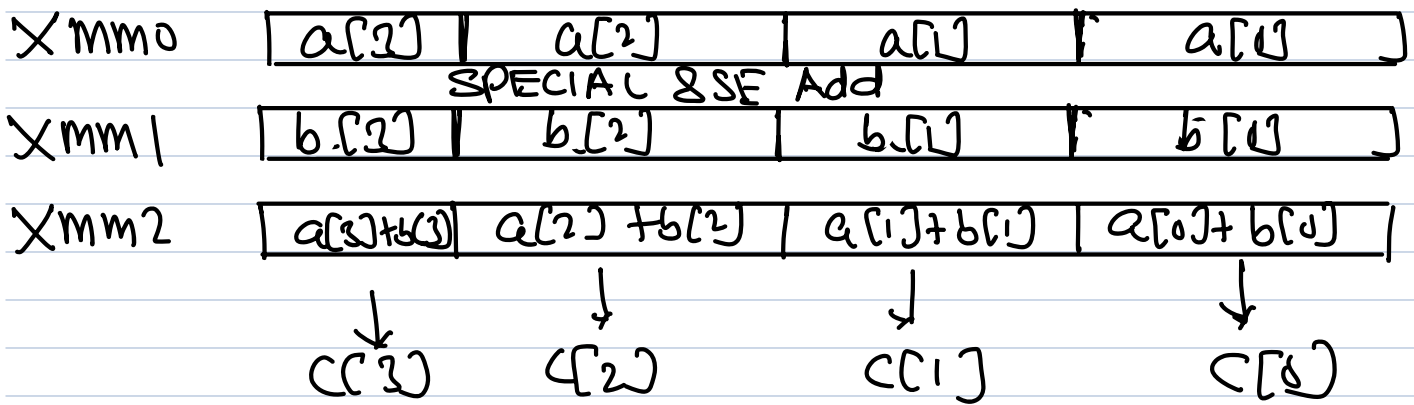 Xmm0 a[3] a[2] a[1] a[0]
SPECIAL SSE Add
Xmm1 b.[3] b.[2] b.[1] b[0]
Xmm2 a[3]+b[3] a[2]+b[2] a[1]+b[1] a[0]+b[0]
C[3] C[2] C[1] C[0]